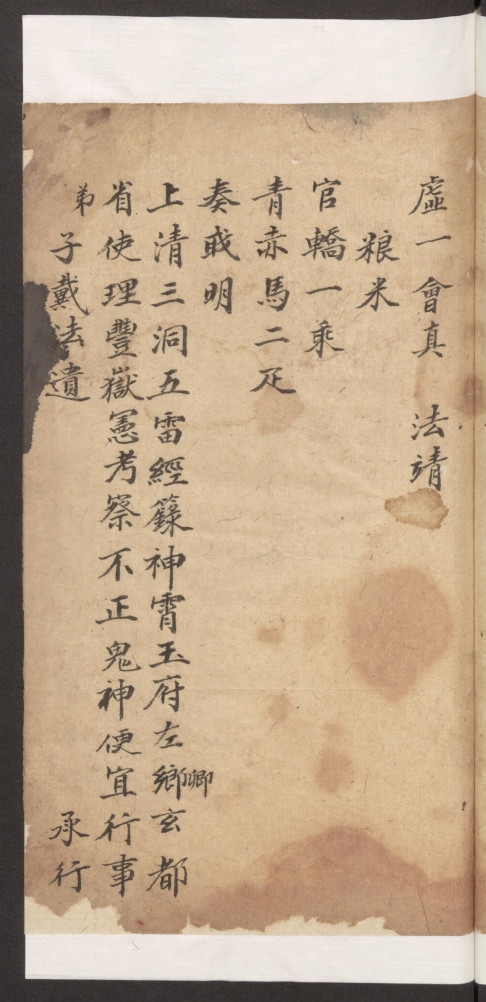 虛一會真　法靖
粮米
官轎一乘
青赤馬二疋
奏戢明
上清三洞五雷經籙神霄玉府左鄉卿玄都
省使理酆嶽憲考察不正鬼神便宜行事
弟子戴法遺　承行